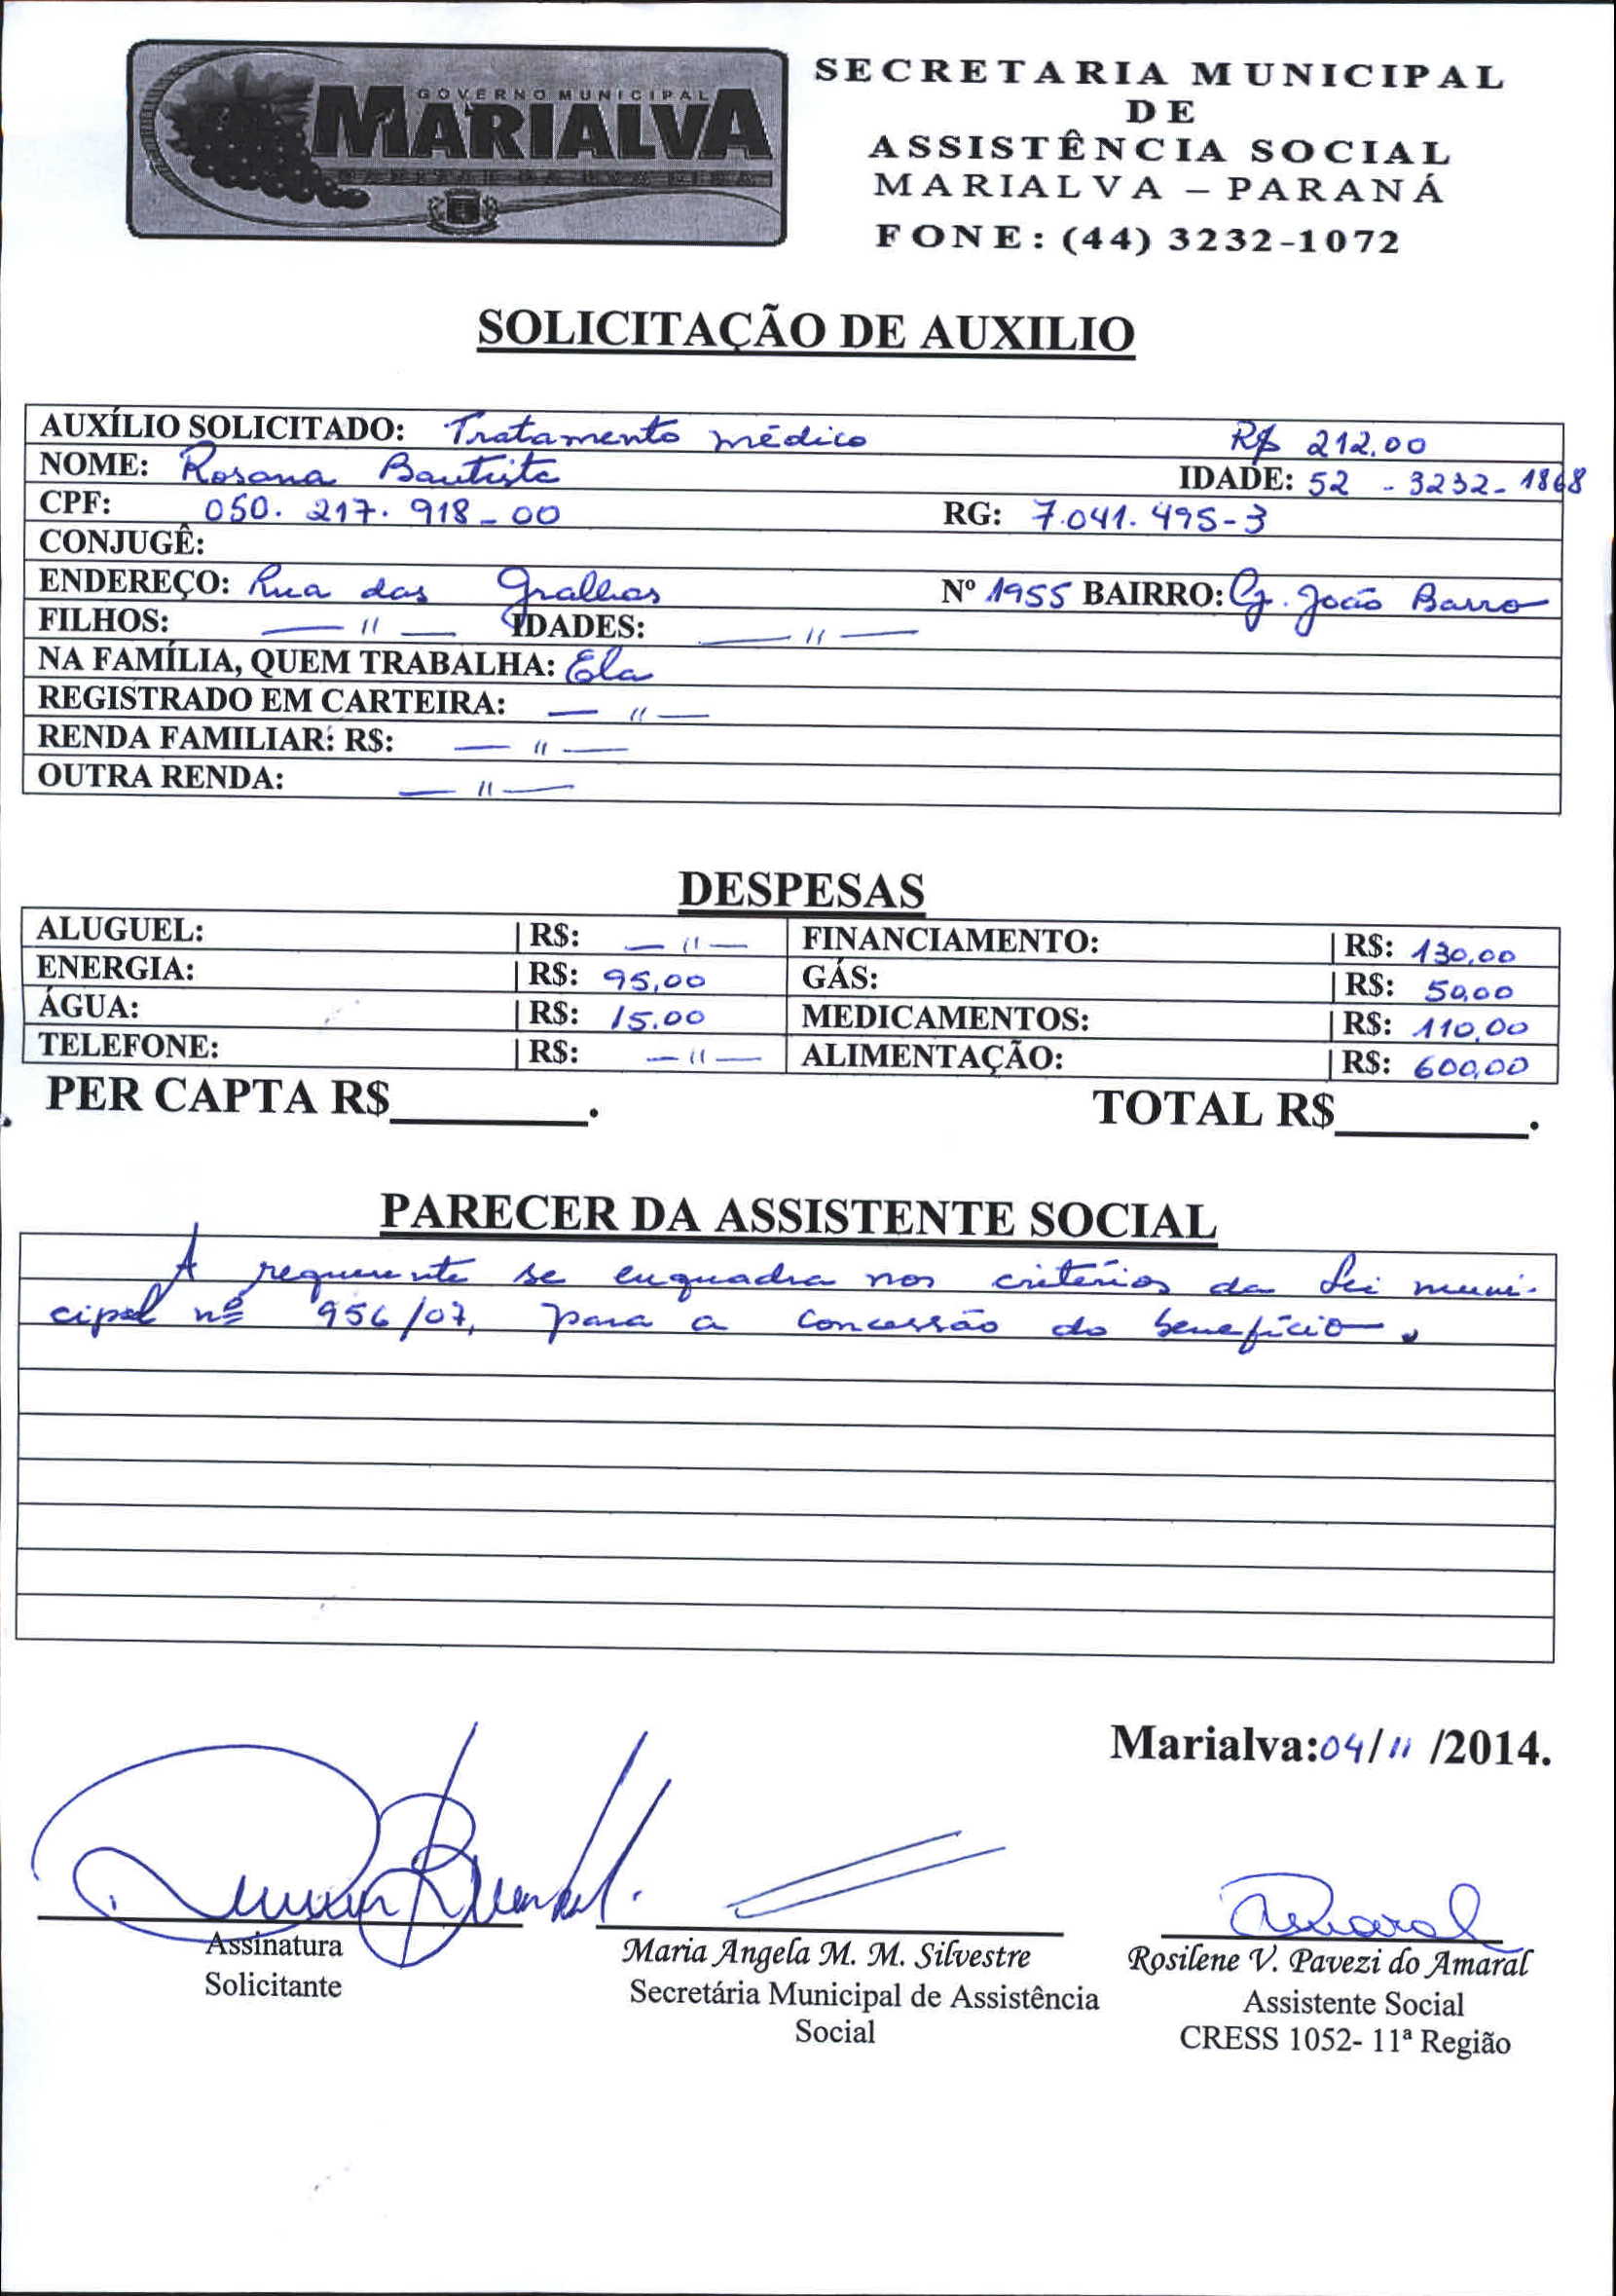 GOVERNO MUNICIPAL
MARIALVA
SECRETARIA MUNICIPAL
DE
ASSISTÊNCIA SOCIAL
MARIALVA – PARANÁ
FONE: (44) 3232-1072
SOLICITAÇÃO DE AUXILIO
AUXÍLIO SOLICITADO: Tratamento médico R$ 212,00
NOME: Rosana Bautista IDADE: 52 - 3232-1868
CPF: 050.217.918-00 RG: 7.041.495-3
CONJUGÊ:
ENDEREÇO: Rua das Gralhas Nº 1955 BAIRRO: Cj. João Barro
FILHOS: — // — IDADES: — // —
NA FAMÍLIA, QUEM TRABALHA: Ela
REGISTRADO EM CARTEIRA: — // —
RENDA FAMILIAR: R$: — // —
OUTRA RENDA: — // —
DESPESAS
ALUGUEL: | R$: — // — FINANCIAMENTO: | R$: 130,00
ENERGIA: | R$: 95,00 GÁS: | R$: 50,00
ÁGUA: | R$: 15,00 MEDICAMENTOS: | R$: 110,00
TELEFONE: | R$: — // — ALIMENTAÇÃO: | R$: 600,00
PER CAPTA R$________. TOTAL R$________.
PARECER DA ASSISTENTE SOCIAL
A requerente se enquadra nos critérios da Lei muni-
cipal nº 956/07, para a concessão do benefício.
Marialva:04/11 /2014.
Amaral
Assinatura
Solicitante
Maria Angela M. M. Silvestre
Secretária Municipal de Assistência
Social
Rosilene V. Pavezi do Amaral
Assistente Social
CRESS 1052- 11ª Região